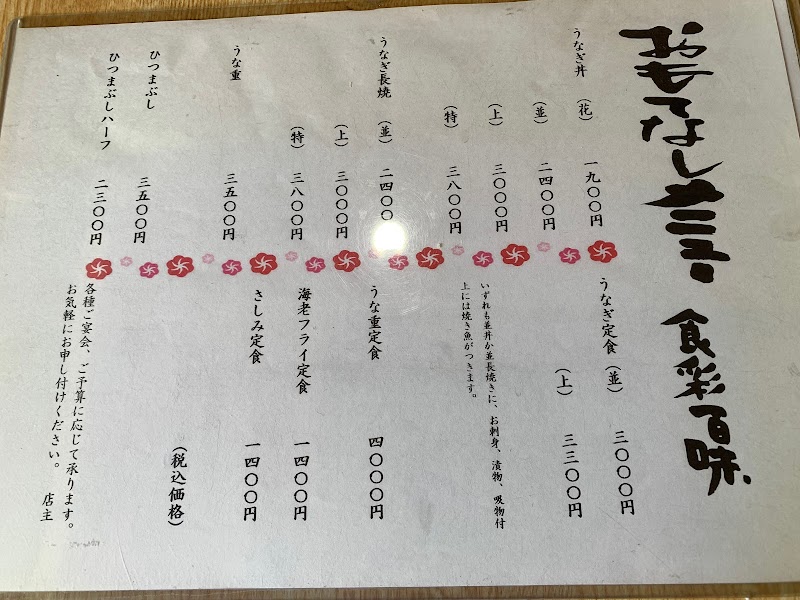 おもてなしメニュー 食彩百味、
うなぎ丼 (花) 一九〇〇円
(並) 二四〇〇円
(上) 三〇〇〇円
(特) 三八〇〇円
うなぎ長焼 (並) 二四〇〇
(上) 三〇〇〇円
(特) 三八〇〇円
うな重 三五〇〇円
ひつまぶし 三五〇〇円
ひつまぶしハーフ 二三〇〇円
うなぎ定食 (並) 三〇〇〇円
(上) 三三〇〇円
いずれも並丼か並長焼きに、お刺身、漬物、吸物付
上には焼き魚がつきます。
うな重定食 四〇〇〇円
海老フライ定食 一四〇〇円
さしみ定食 一四〇〇円
(税込価格)
各種ご宴会、ご予算に応じて承ります。
お気軽にお申し付けください。 店主